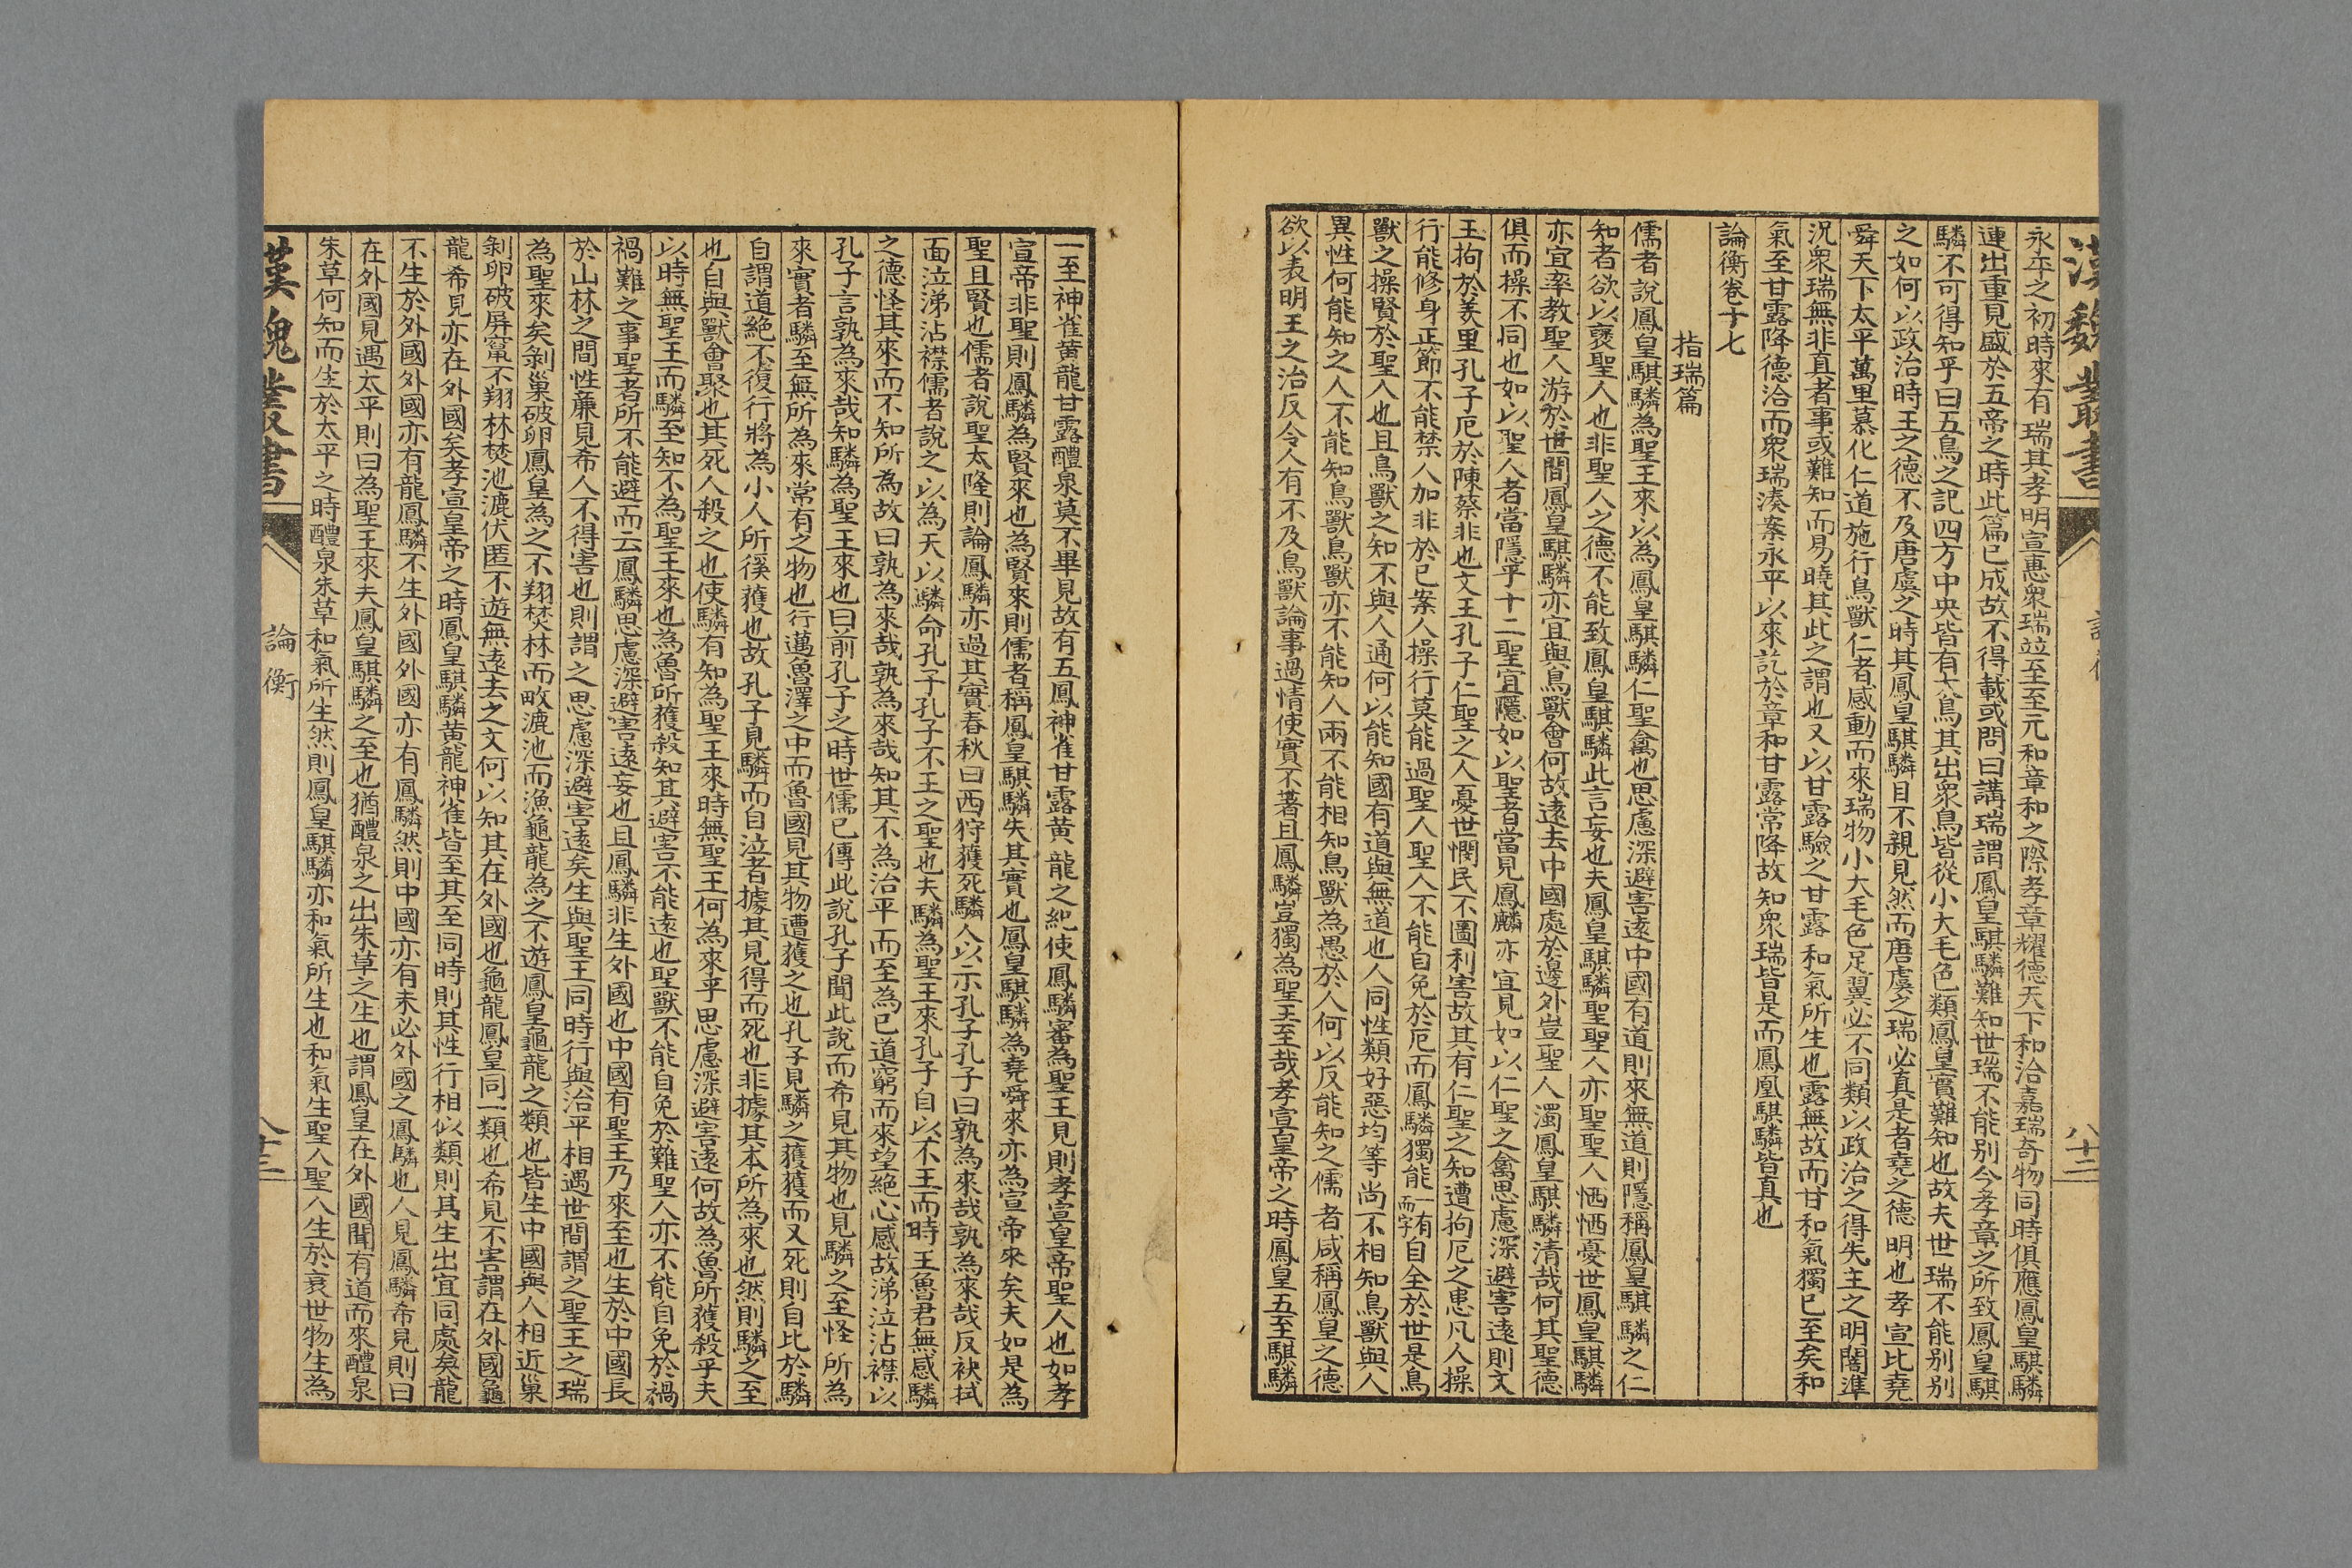 漢魏叢書
八十二
永平之初時來有瑞其孝明宣惠衆瑞竝至至元和章和之際孝章耀德天下和洽嘉瑞奇物同時俱應鳳皇騏驎
連出重見盛於五帝之時此篇已成故不得載或問曰講瑞謂鳳皇騏驎難知世瑞不能别今孝章之所致鳳皇騏
驎不可得知乎曰五鳥之記四方中央皆有大鳥其出衆鳥皆從小大毛色類鳳皇實難知也故夫世瑞不能别别
之如何以政治時王之德不及唐虞之時其鳳皇騏驎目不親見然而唐虞之瑞必真是者堯之德明也孝宣比堯
舜天下太平萬里慕化仁道施行鳥獸仁者感動而來瑞物小大毛色足翼必不同類以政治之得失主之明闇準
況衆瑞無非真者事或難知而易曉其此之謂也又以甘露驗之甘露和氣所生也露無故而甘和氣獨已至矣和
氣至甘露降德洽而衆瑞湊案永平以來訖於章和甘露常降故知衆瑞皆是而鳳凰騏驎皆真也
論衡卷十七
指瑞篇
儒者說鳳皇騏驎為聖王來以為鳳皇騏驎仁聖禽也思慮深避害遠中國有道則來無道則隱稱鳳皇騏驎之仁
知者欲以襃聖人也非聖人之德不能致鳳皇騏驎此言妄也夫鳳皇騏驎聖聖人亦聖聖人恓恓憂世鳳皇騏驎
亦宜率教聖人游於世間鳳皇騏驎亦宜與鳥獸會何故遠去中國處於邊外豈聖人濁鳳皇騏驎清哉何其聖德
俱而操不同也如以聖人者當隱乎十二聖宜隱如以聖者當見鳳麟亦宜見如以仁聖之禽思慮深避害遠則文
王拘於羑里孔子厄於陳蔡非也文王孔子仁聖之人憂世憫民不圖利害故其有仁聖之知遭拘厄之患凡人操
行能修身正節不能禁人加非於已案人操行莫能過聖人聖人不能自免於厄而鳳驎獨能一有而字自全於世是鳥
獸之操賢於聖人也且鳥獸之知不與人通何以能知國有道與無道也人同性類好惡均等尚不相知鳥獸與人
異性何能知之人不能知鳥獸鳥獸亦不能知人兩不能相知鳥獸為愚於人何以反能知之儒者咸稱鳳皇之德
欲以表明王之治反令人有不及鳥獸論事過情使實不著且鳳驎豈獨為聖王至哉孝宣皇帝之時鳳皇五至騏驎
一至神雀黄龍甘露醴泉莫不畢見故有五鳳神雀甘露黄龍之紀使鳳驎審為聖王見則孝宣皇帝聖人也如孝
宣帝非聖則鳳驎為賢來也為賢來則儒者稱鳳皇騏驎失其實也鳳皇騏驎為堯舜來亦為宣帝來矣夫如是為
聖且賢也儒者說聖太隆則論鳳驎亦過其實春秋曰西狩獲死驎人以示孔子孔子曰孰為來哉孰為來哉反袂拭
面泣涕沾襟儒者說之以為天以驎命孔子孔子不王之聖也夫驎為聖王來孔子自以不王而時王魯君無感驎
之德怪其來而不知所為故曰孰為來哉孰為來哉知其不為治平而至為已道窮而來望絕心感故涕泣沾襟以
孔子言孰為來哉知驎為聖王來也曰前孔子之時世儒已傳此說孔子聞此說而希見其物也見驎之至怪所為
來實者驎至無所為來常有之物也行邁魯澤之中而魯國見其物遭獲之也孔子見驎之獲獲而又死則自比於驎
自謂道絕不復行將為小人所徯獲也故孔子見驎而自泣者據其見得而死也非據其本所為來也然則驎之至
也自與獸會聚也其死人殺之也使驎有知為聖王來時無聖王何為來乎思慮深避害遠何故為魯所獲殺乎夫
以時無聖王而驎至知不為聖王來也為魯所獲殺知其避害不能遠也聖獸不能自免於難聖人亦不能自免於禍
禍難之事聖者所不能避而云鳳驎思慮深避害遠妄也且鳳驎非生外國也中國有聖王乃來至也生於中國長
於山林之間性廉見希人不得害也則謂之思慮深避害遠矣生與聖王同時行與治平相遇世間謂之聖王之瑞
為聖來矣剝巢破卵鳳皇為之不翔焚林而畋漉池而漁龜龍為之不遊鳳皇龜龍之類也皆生中國與人相近巢
剝卵破屏竄不翔林焚池漉伏匿不遊無遠去之文何以知其在外國也龜龍鳳皇同一類也希見不害謂在外國龜
龍希見亦在外國矣孝宣皇帝之時鳳皇騏驎黄龍神雀皆至其至同時則其性行相似類則其生出宜同處矣龍
不生於外國外國亦有龍鳳驎不生外國外國亦有鳳驎然則中國亦有未必外國之鳳驎也人見鳳驎希見則曰
在外國見遇太平則曰為聖王來夫鳳皇騏驎之至也猶醴泉之出朱草之生也謂鳳皇在外國聞有道而來醴泉
朱草何知而生於太平之時醴泉朱草和氣所生然則鳳皇騏驎亦和氣所生也和氣生聖人聖人生於衰世物生為
漢魏叢書
論衡
八十三